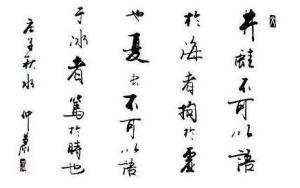 井蛙不可以語
於海者拘於虛
也夏虫不可以語
于冰者篤於時也
庄子秋水